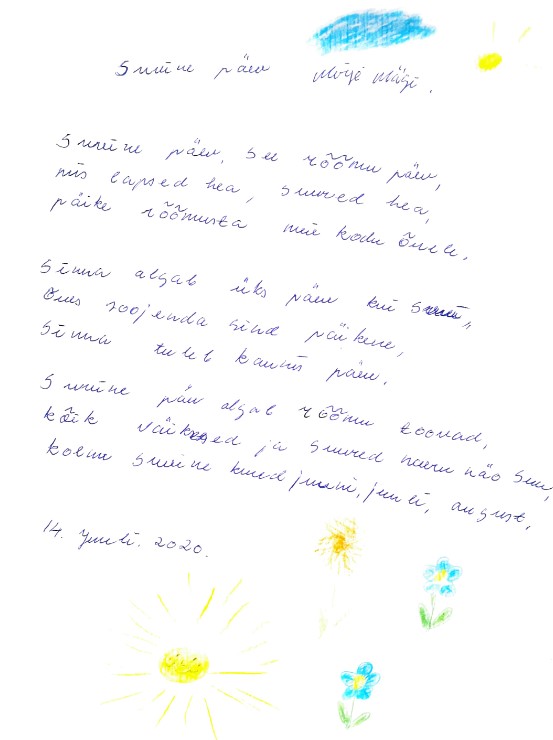 Suvine päev Mirje Mägi.
Suvine päev, see rõõmu päev,
mis lapsed hea, suured hea,
päike rõõmusta meie kodu õnele.
Sinna algab üks päev kui
Õues soojenda sind päikene,
Sinna tuleb kaunis päev.
Suvine päev algab rõõmu toovad,
kõik väiksed ja suured naeru näo suu,
kolm suvine kuud juuni, juuli, august.
14. Juuli. 2020.